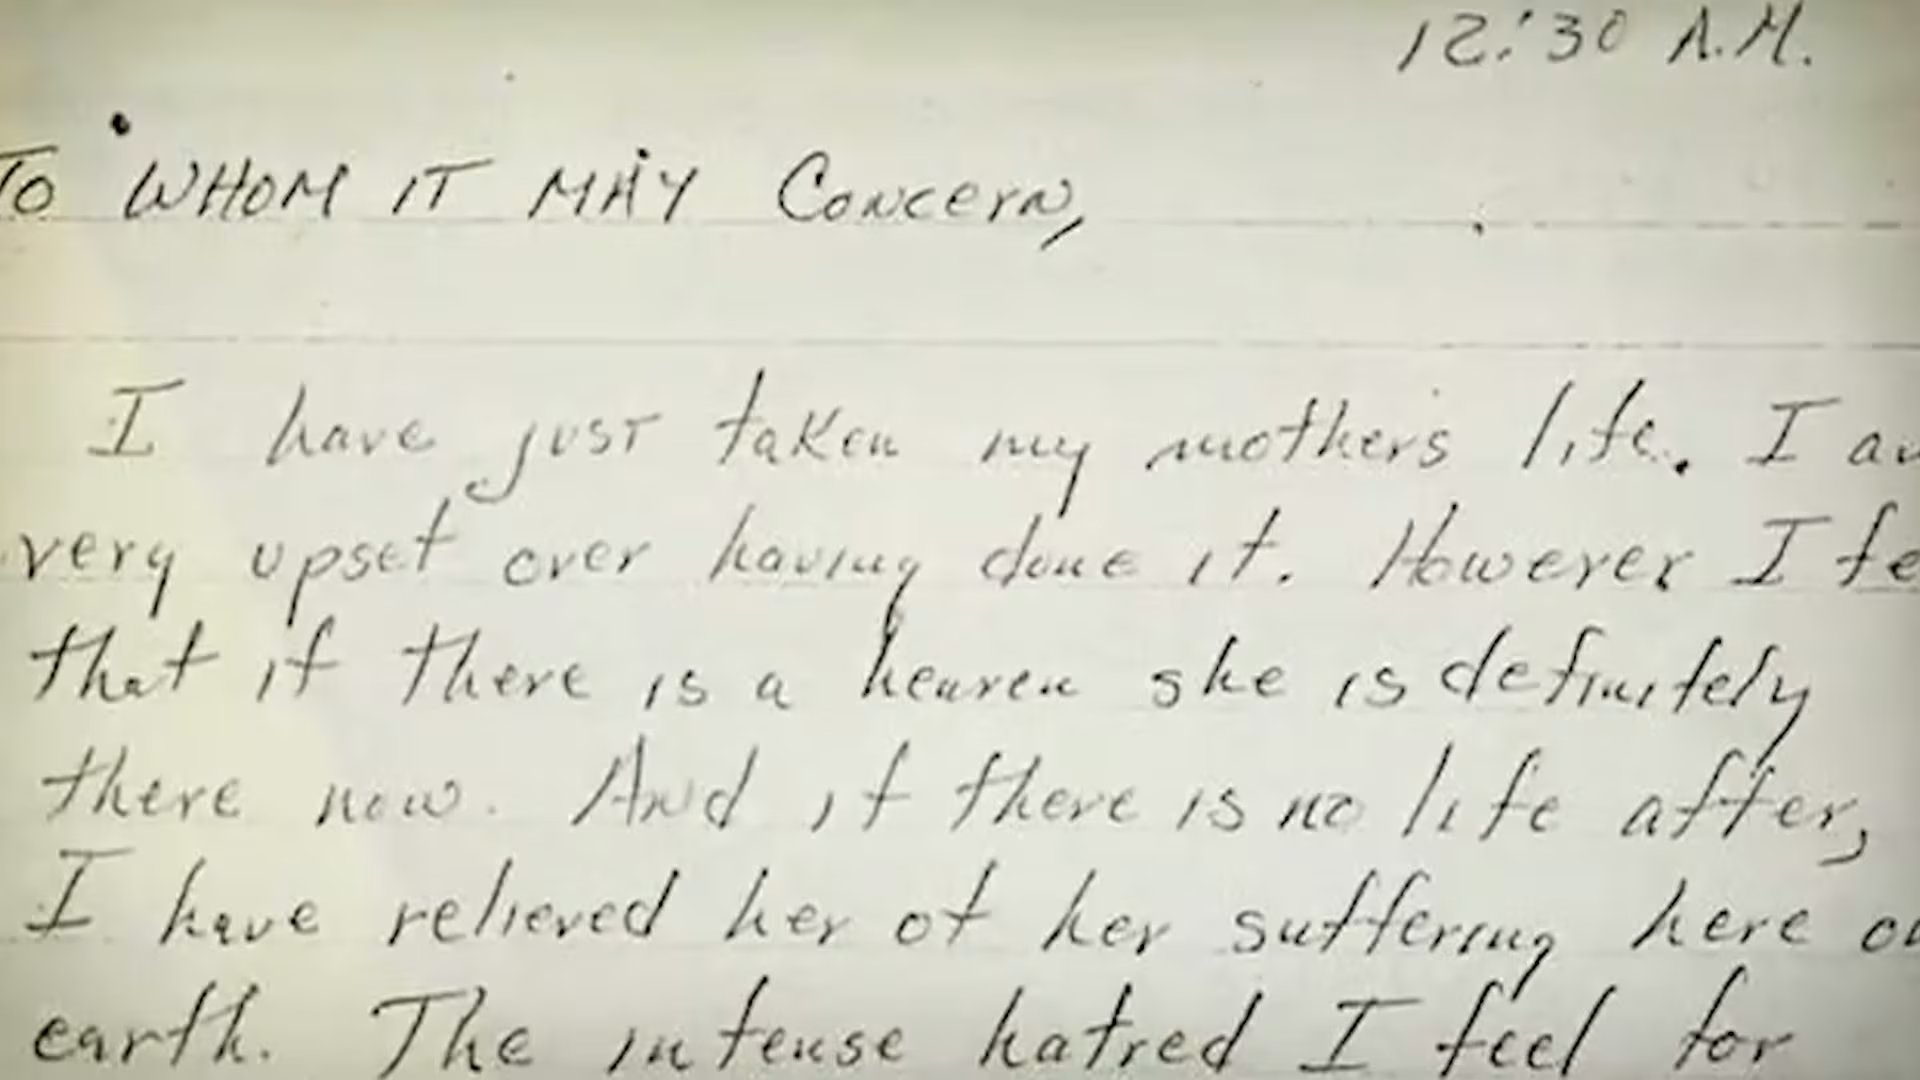 12:30 A.M.
To WHOM IT MAY Concern,
I have just taken my mothers life. I
very upset over having done it. However I
that if there is a heaven she is definitely
there now. And if there is no life after,
I have relieved her of her suffering here
earth. The intense hatred I feel for